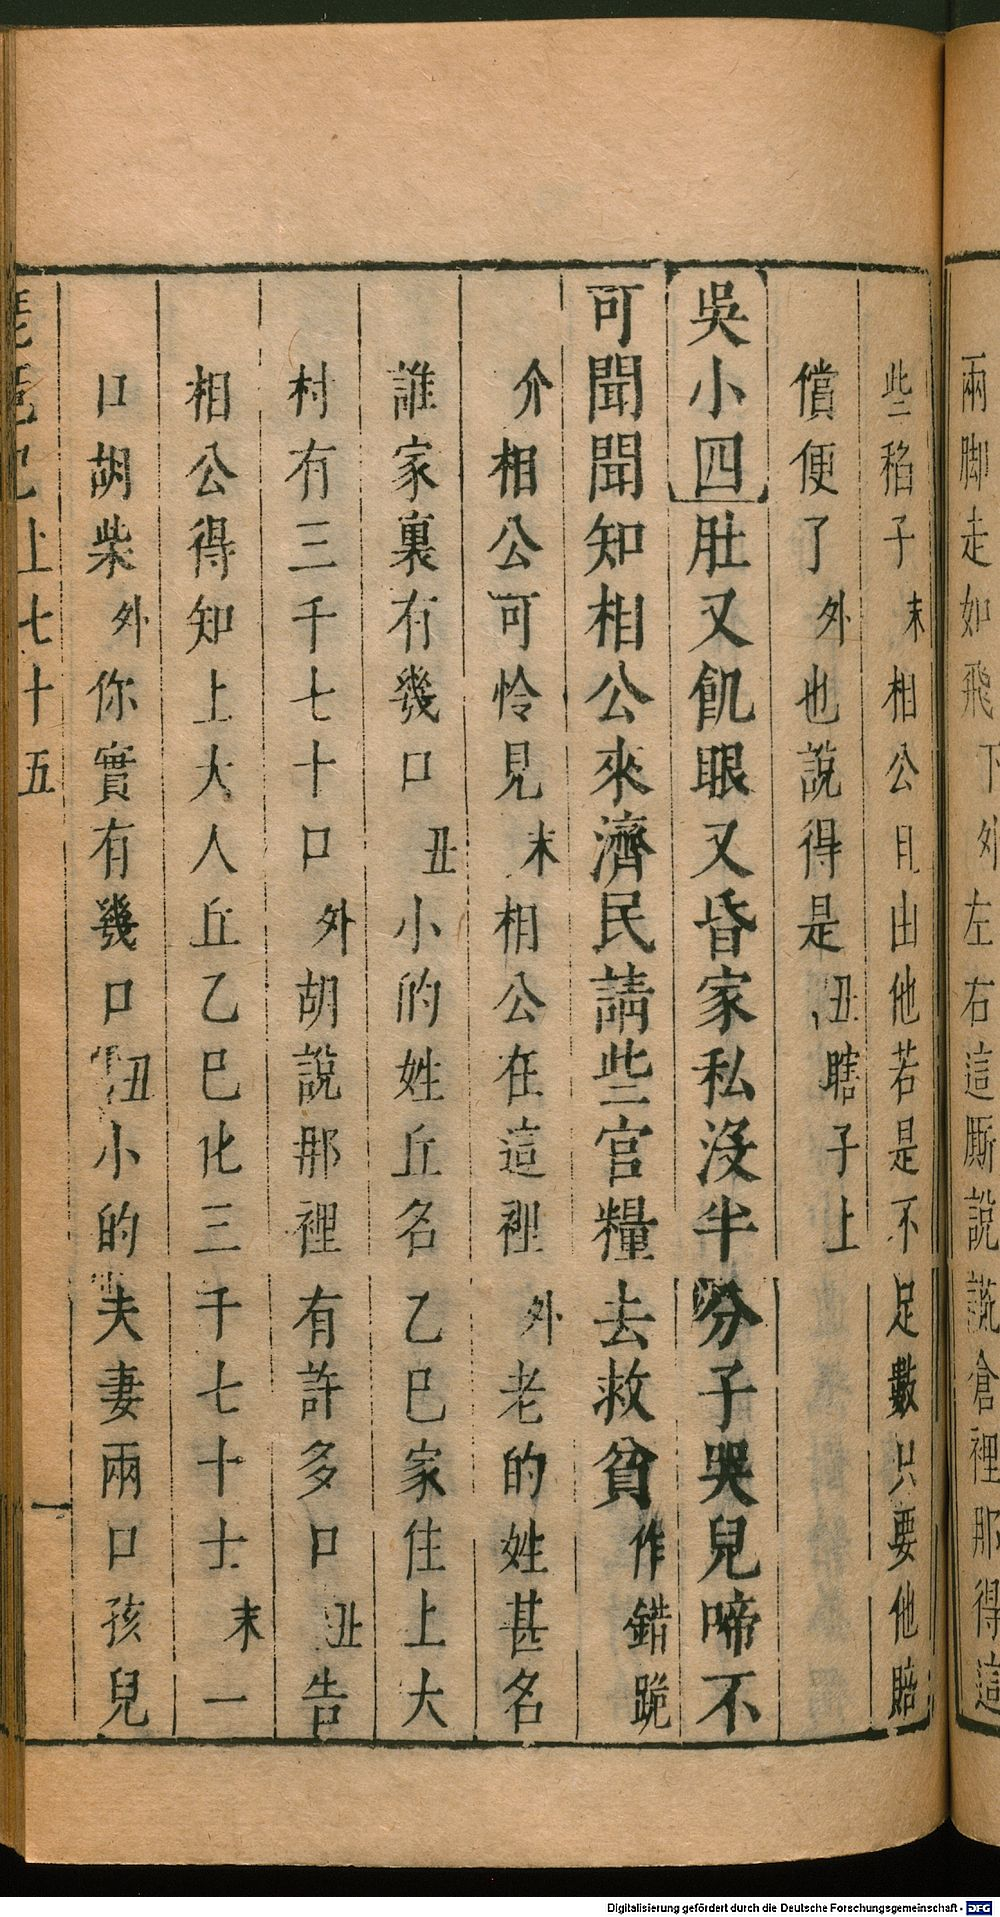 兩脚走如飛下外左右這厮説謊倉裡那得這
些稻子末相公且由他若是不足數只要他賠
償便了外也說得是丑瞎子上
吳小四肚又飢眼又昏家私沒半分子哭兒啼不
可聞聞知相公來濟民請些官糧去救貧作錯跪
介相公可怜見末相公在這裡外老的姓甚名
誰家裏有幾口丑小的姓丘名乙巳家住上大
村有三千七十口外胡說那裡有許多口丑告
相公得知上大人丘乙巳化三千七十士末一
口胡柴外你實有幾口丑小的夫妻兩口孩兒
琵琶記上七十五
Digitalisierung gefördert durch die Deutsche Forschungsgemeinschaft - DFG